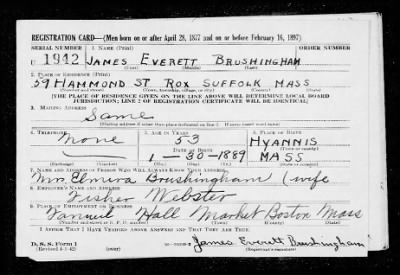 REGISTRATION CARD—(Men born on or after April 28, 1877 and on or before February 16, 1897)
SERIAL NUMBER 1. NAME (Print) ORDER NUMBER
U 1942 JAMES EVERETT BRUSHINGHAM
(First) (Middle) (Last)
2. PLACE OF RESIDENCE (Print)
59 HAMMOND ST ROX SUFFOLK MASS
(Number and street) (Town, township, village, or city) (County) (State)
[THE PLACE OF RESIDENCE GIVEN ON THE LINE ABOVE WILL DETERMINE LOCAL BOARD
JURISDICTION; LINE 2 OF REGISTRATION CERTIFICATE WILL BE IDENTICAL]
3. MAILING ADDRESS
Same
[Mailing address if other than place indicated on line 2. If same insert word same]
4. TELEPHONE 5. AGE IN YEARS 6. PLACE OF BIRTH
None 53 HYANNIS
DATE OF BIRTH (Town or county)
1 - 30 - 1889 MASS
(Mo.) (Day) (Yr.) (State or country)
7. NAME AND ADDRESS OF PERSON WHO WILL ALWAYS KNOW YOUR ADDRESS
Mrs. Elmira Brushingham (wife
8. EMPLOYER'S NAME AND ADDRESS
Fisher Webster
9. PLACE OF EMPLOYMENT OR BUSINESS
Fanueil Hall Market Boston Mass
(Number and street or R. F. D. number) (Town) (County) (State)
I AFFIRM THAT I HAVE VERIFIED ABOVE ANSWERS AND THAT THEY ARE TRUE.
D. S. S. Form 1
(Revised 4-1-42) James Everett Brushingham